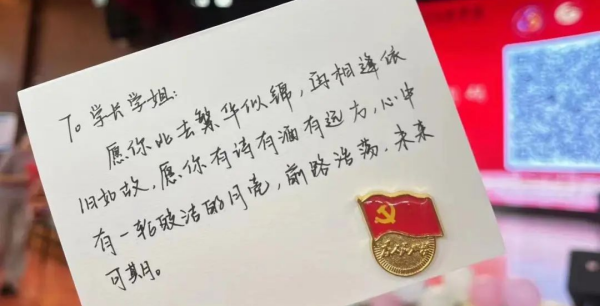 To 学长学姐:
愿你此去繁华似锦,再相逢依
旧如故,愿你有诗有酒有远方,心中
有一轮皎洁的月亮,前路浩荡,未来
可期。
为人民服务